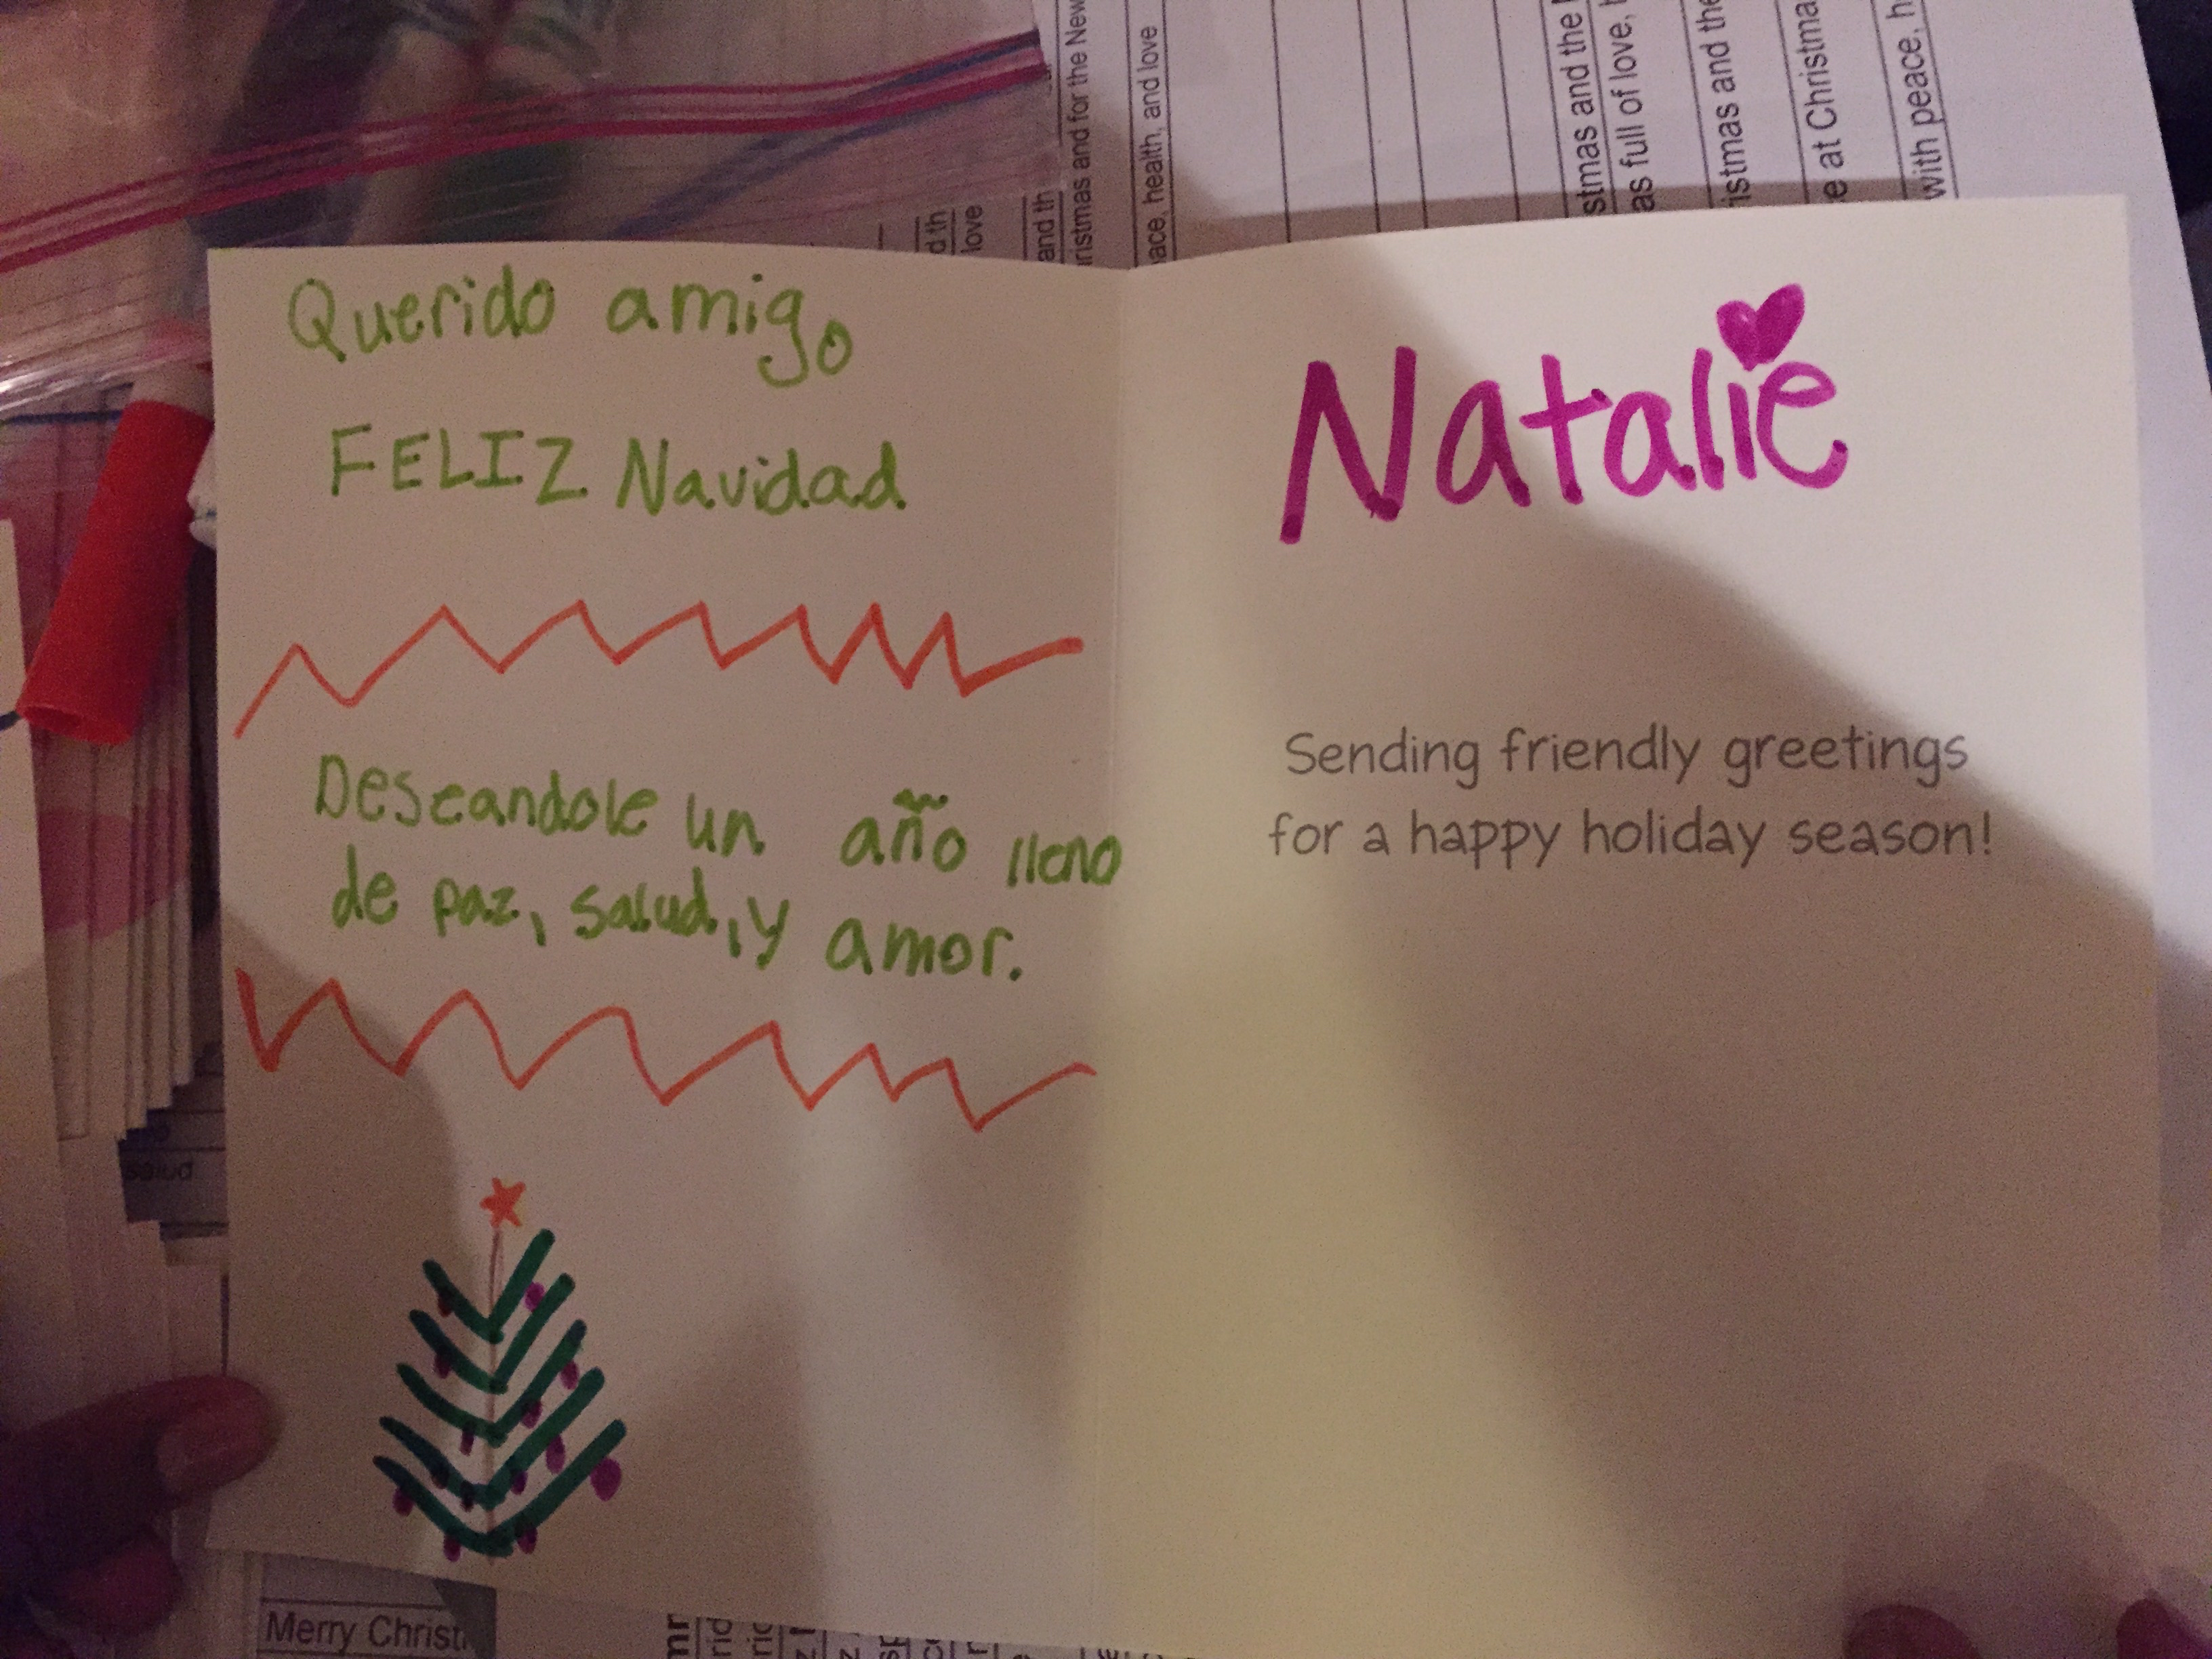 Querido amigo
FELIZ Navidad
Deseandole un año lleno
de paz, salud, y amor.
Natalie
Sending friendly greetings
for a happy holiday season!
love
and th
ristmas and for the New
ace, health, and love
stmas and the
as full of love,
istmas and the
e at Christma
with peace, h
salud
Merry Christ